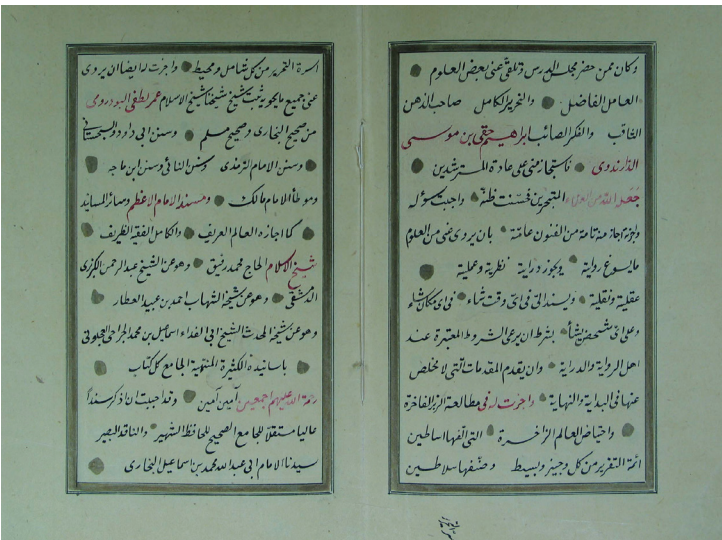 وكان ممن حضر مجلس الدرس وتلقى عنى بعض العلوم
العامل الفاضل والنحرير الكامل صاحب الذهن
الثاقب والفكر الصائب ابراهيم حقى بن موسى
الدارندوى فاستجاز منى على عادة المسترشدين
جعله الله من العلماء المتبحرين فحسنت ظنه واجبت سؤله
واجزته اجازة تامة من الفنون عامة بان يروى عنى من العلوم
ما يسوغ رواية ويجوز دراية نظرية وعملية
عقلية ونقلية ويسند الى فى اى وقت شاء فى اى مكان شاء
وعلى اى شخص يشأ بشرط ان يرعى الشروط المعتبرة عند
اهل الرواية والدراية وان يقدم المقدمات التى لا مخلص
عنها فى البداية والنهاية واجزت له فى مطالعة الزبر الفاخرة
واحتياض العالم الزاخرة التى الفها اساطين
ائمة التقرير من كل وجيز وبسيط وصنفها سلاطين
اسرة التحرير من كل شامل ومحيط واجزت له ايضا ان يروى
عنى جميع ما يحويه ثبت شيخ شيخنا شيخ الاسلام عمر لطفى البودرومى
من صحيح البخارى وصحيح مسلم وسنن ابى داود السجستانى
وسنن الامام الترمذى وسنن النسائى وسنن ابن ماجه
وموطأ الامام مالك ومسند الامام الاعظم وسائر المسانيد
كما اجازه العالم العريف والكامل الفقيه الظريف
شيخ الاسلام الحاج محمد رفيق وهو عن الشيخ عبد الرحمن الكزبرى
الدمشقى وهو عن شيخه الشهاب احمد بن عبيد العطار
وهو عن شيخه المحدث الشيخ ابى الفداء اسماعيل بن محمد الجراحى العجلونى
باسانيده الكثيرة المنتوية الجامع كل كتاب
رحمة الله عليهم اجمعين آمين آمين وقد احببت ان اذكر سندا
عاليا مستقلا للجامع الصحيح للحافظ الشهير والناقد البصير
سيدنا الامام ابى عبد الله محمد بن اسماعيل البخارى